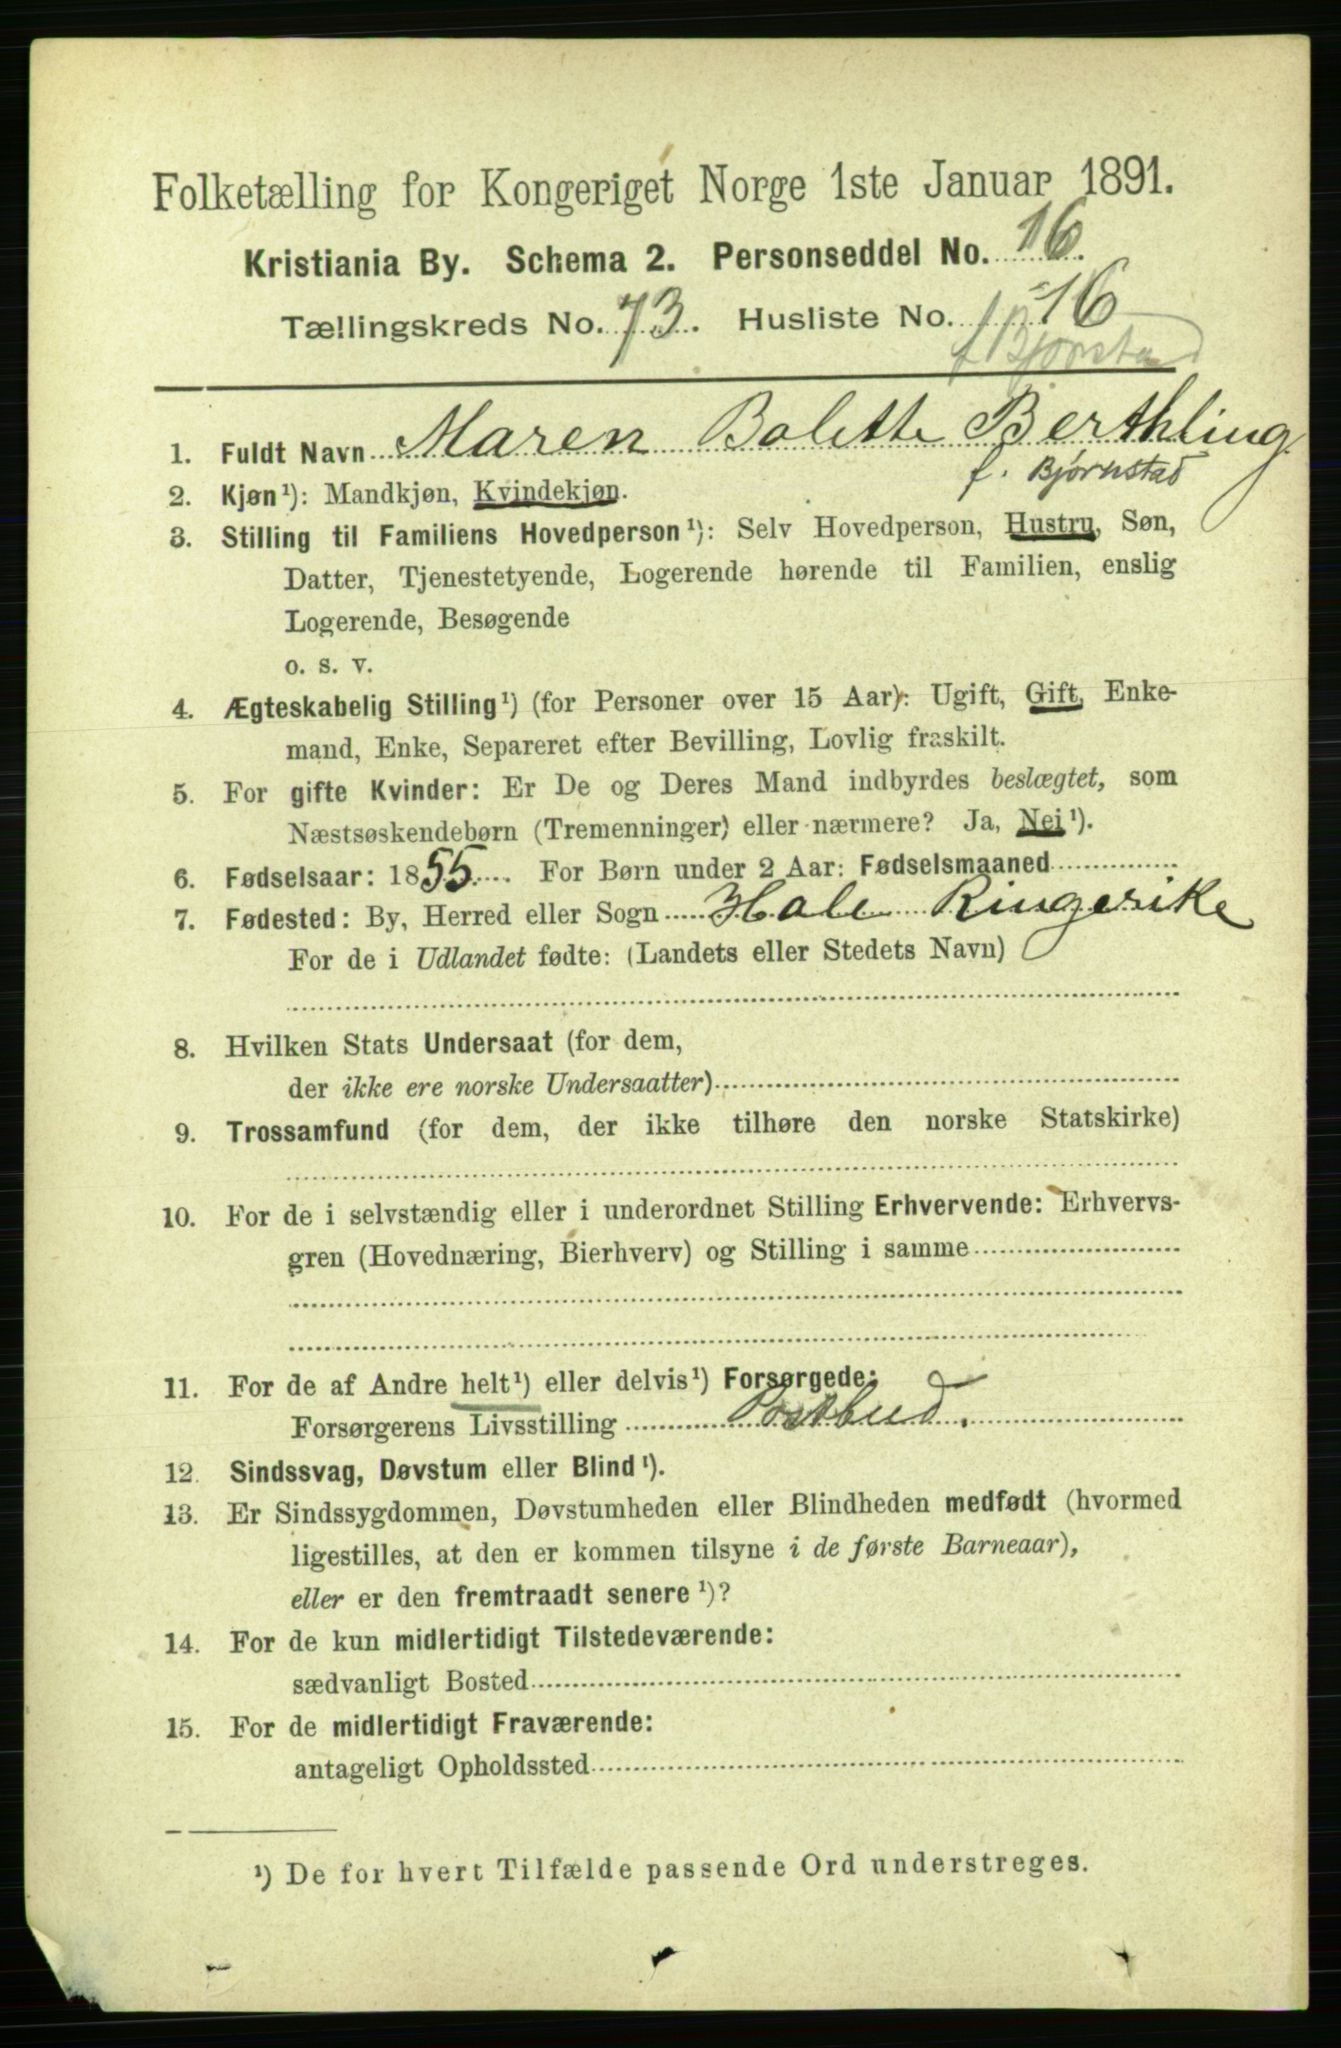 Folketælling for Kongeriget Norge 1ste Januar 1891.
Kristiania By. Schema 2. Personseddel No. 16.
Tællingskreds No. 73. Husliste No. 16
f. Bjørnstad
1. Fuldt Navn Maren Bolette Berthling
f. Bjørnstad
2. Kjøn¹): Mandkjøn, Kvindekjøn.
3. Stilling til Familiens Hovedperson¹): Selv Hovedperson, Hustru, Søn,
Datter, Tjenestetyende, Logerende hørende til Familien, enslig
Logerende, Besøgende
o. s. v.
4. Ægteskabelig Stilling¹) (for Personer over 15 Aar): Ugift, Gift, Enke-
mand, Enke, Separeret efter Bevilling, Lovlig fraskilt.
5. For gifte Kvinder: Er De og Deres Mand indbyrdes beslægtet, som
Næstsøskendebørn (Tremenninger) eller nærmere? Ja, Nei¹).
6. Fødselsaar: 1855. For Børn under 2 Aar: Fødselsmaaned
7. Fødested: By, Herred eller Sogn Hole Ringerike
For de i Udlandet fødte: (Landets eller Stedets Navn)
8. Hvilken Stats Undersaat (for dem,
der ikke ere norske Undersaatter)
9. Trossamfund (for dem, der ikke tilhøre den norske Statskirke)
10. For de i selvstændig eller i underordnet Stilling Erhvervende: Erhvervs-
gren (Hovednæring, Bierhverv) og Stilling i samme
11. For de af Andre helt¹) eller delvis¹) Forsørgede:
Forsørgerens Livsstilling Postbud.
12. Sindssvag, Døvstum eller Blind¹).
13. Er Sindssygdommen, Døvstumheden eller Blindheden medfødt (hvormed
ligestilles, at den er kommen tilsyne i de første Barneaar),
eller er den fremtraadt senere¹)?
14. For de kun midlertidigt Tilstedeværende:
sædvanligt Bosted
15. For de midlertidigt Fraværende:
antageligt Opholdssted
¹) De for hvert Tilfælde passende Ord understreges.